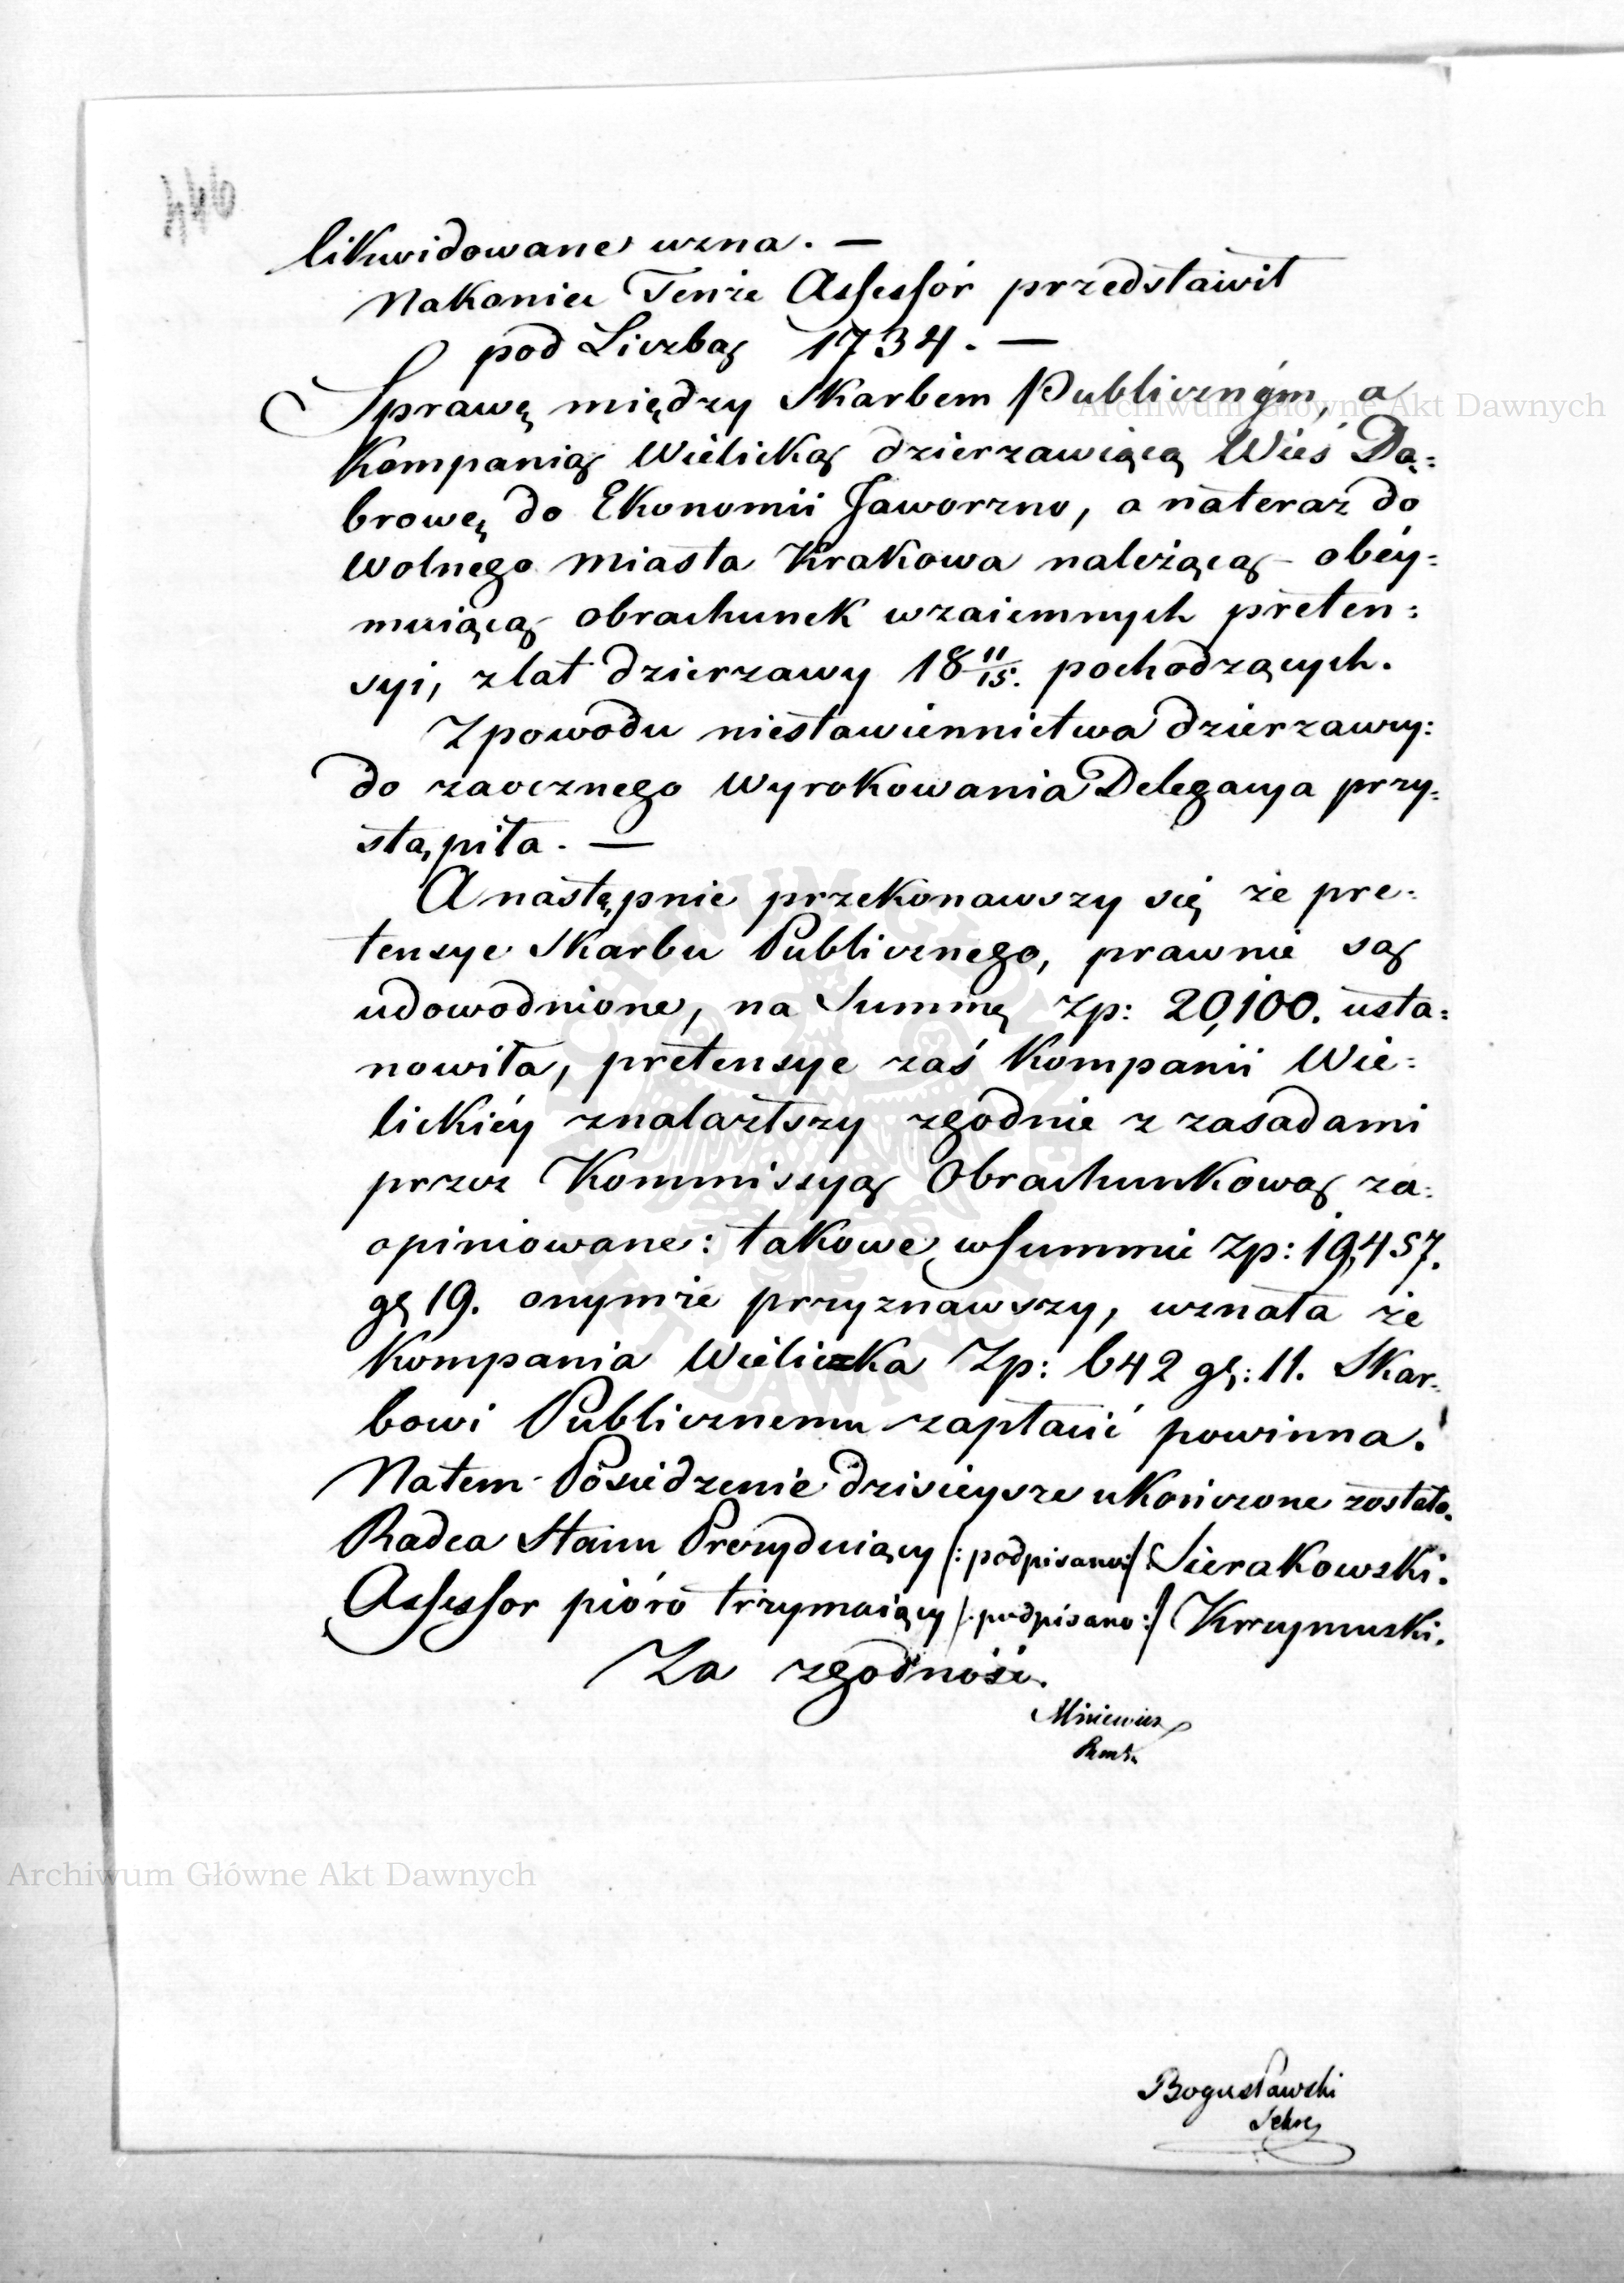 440
likwidowane uzna. —
Nakoniec Tenże Assessór przedstawił
pod Liczbą 1734. —
Sprawę między Skarbem Publicznym, a
Kompanią Wielicką dzierzawiącą Wieś Dą:
browę do Ekonomii Jaworzno, a nateraz do
Wolnego Miasta Krakowa należącą - obéy:
muiącą obrachunek wzaiemnych preten:
syi, z lat dzierzawy 18 11/15. pochodzących.
Z powodu niestawiennictwa dzierzawcy:
do zaocznego Wyrokowania Delegacya przy:
stąpiła. —
A następnie przekonawszy się że pre:
tensye Skarbu Publicznego, prawnie są
udowodnione, na Summę Zp: 20,100. usta:
nowiła, pretensye zaś Kompanii Wie:
lickiéy znalazłszy zgodnie z zasadami
przez Kommissyą Obrachunkową za:
opiniowane: takowe w Summie Zp: 19,457.
gr 19. onymże przyznawszy, uznała że
Kompania Wielicka Zp: 642 gr: 11. Skar:
bowi Publicznemu zapłacić powinna.
Natem Posiedzenie dzisieysze ukończone zostało.
Radca Stanu Prezyduiący /: podpisano:/ Sierakowski.
Assessor pióro trzymaiący /: podpisano:/ Krzymuski.
Za zgodność.
Bogusławski
Sekre
Archiwum Główne Akt Dawnych
Archiwum Główne Akt Dawnych
ARCHIWUM GŁÓWNE
AKT DAWNYCH